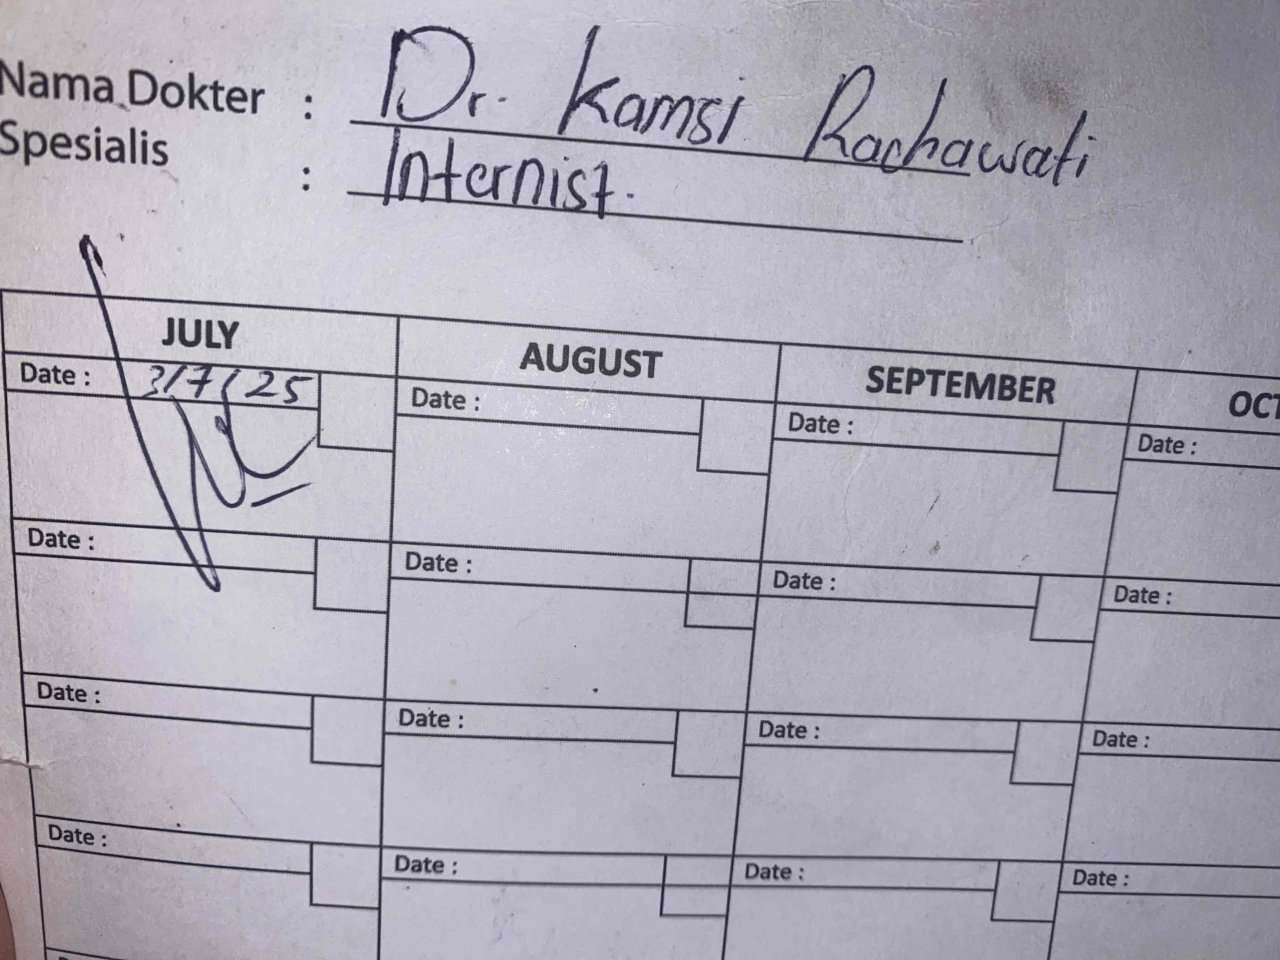 Nama Dokter : Dr. Kamsi Rachawati
Spesialis : Internist.
JULY AUGUST SEPTEMBER OCT
Date : 3/7/25 Date : Date : Date :
Date : Date : Date : Date :
Date : Date : Date : Date :
Date : Date : Date : Date :